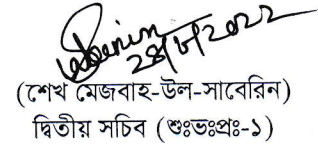 28/6/2022
(শেখ মেজবাহ-উল-সাবেরিন)
দ্বিতীয় সচিব (শুঃভঃপ্রঃ-১)